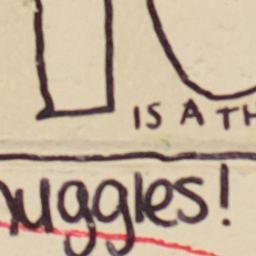 IS A TH
uggles!